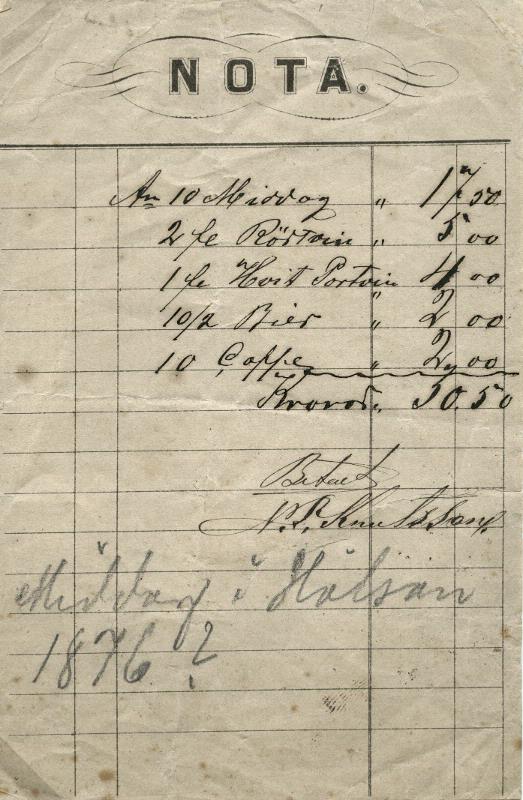 NOTA.
An 10 Middag " 17 50
2 fle Rödtvin " 5 00
1 fle Hvit Portvin " 4 00
10/2 Bier " 2 00
10 Caffe " 2 00
Kronor 30.50
Betalt
N. P. Knutsson
Middag i Hälsan
1876?